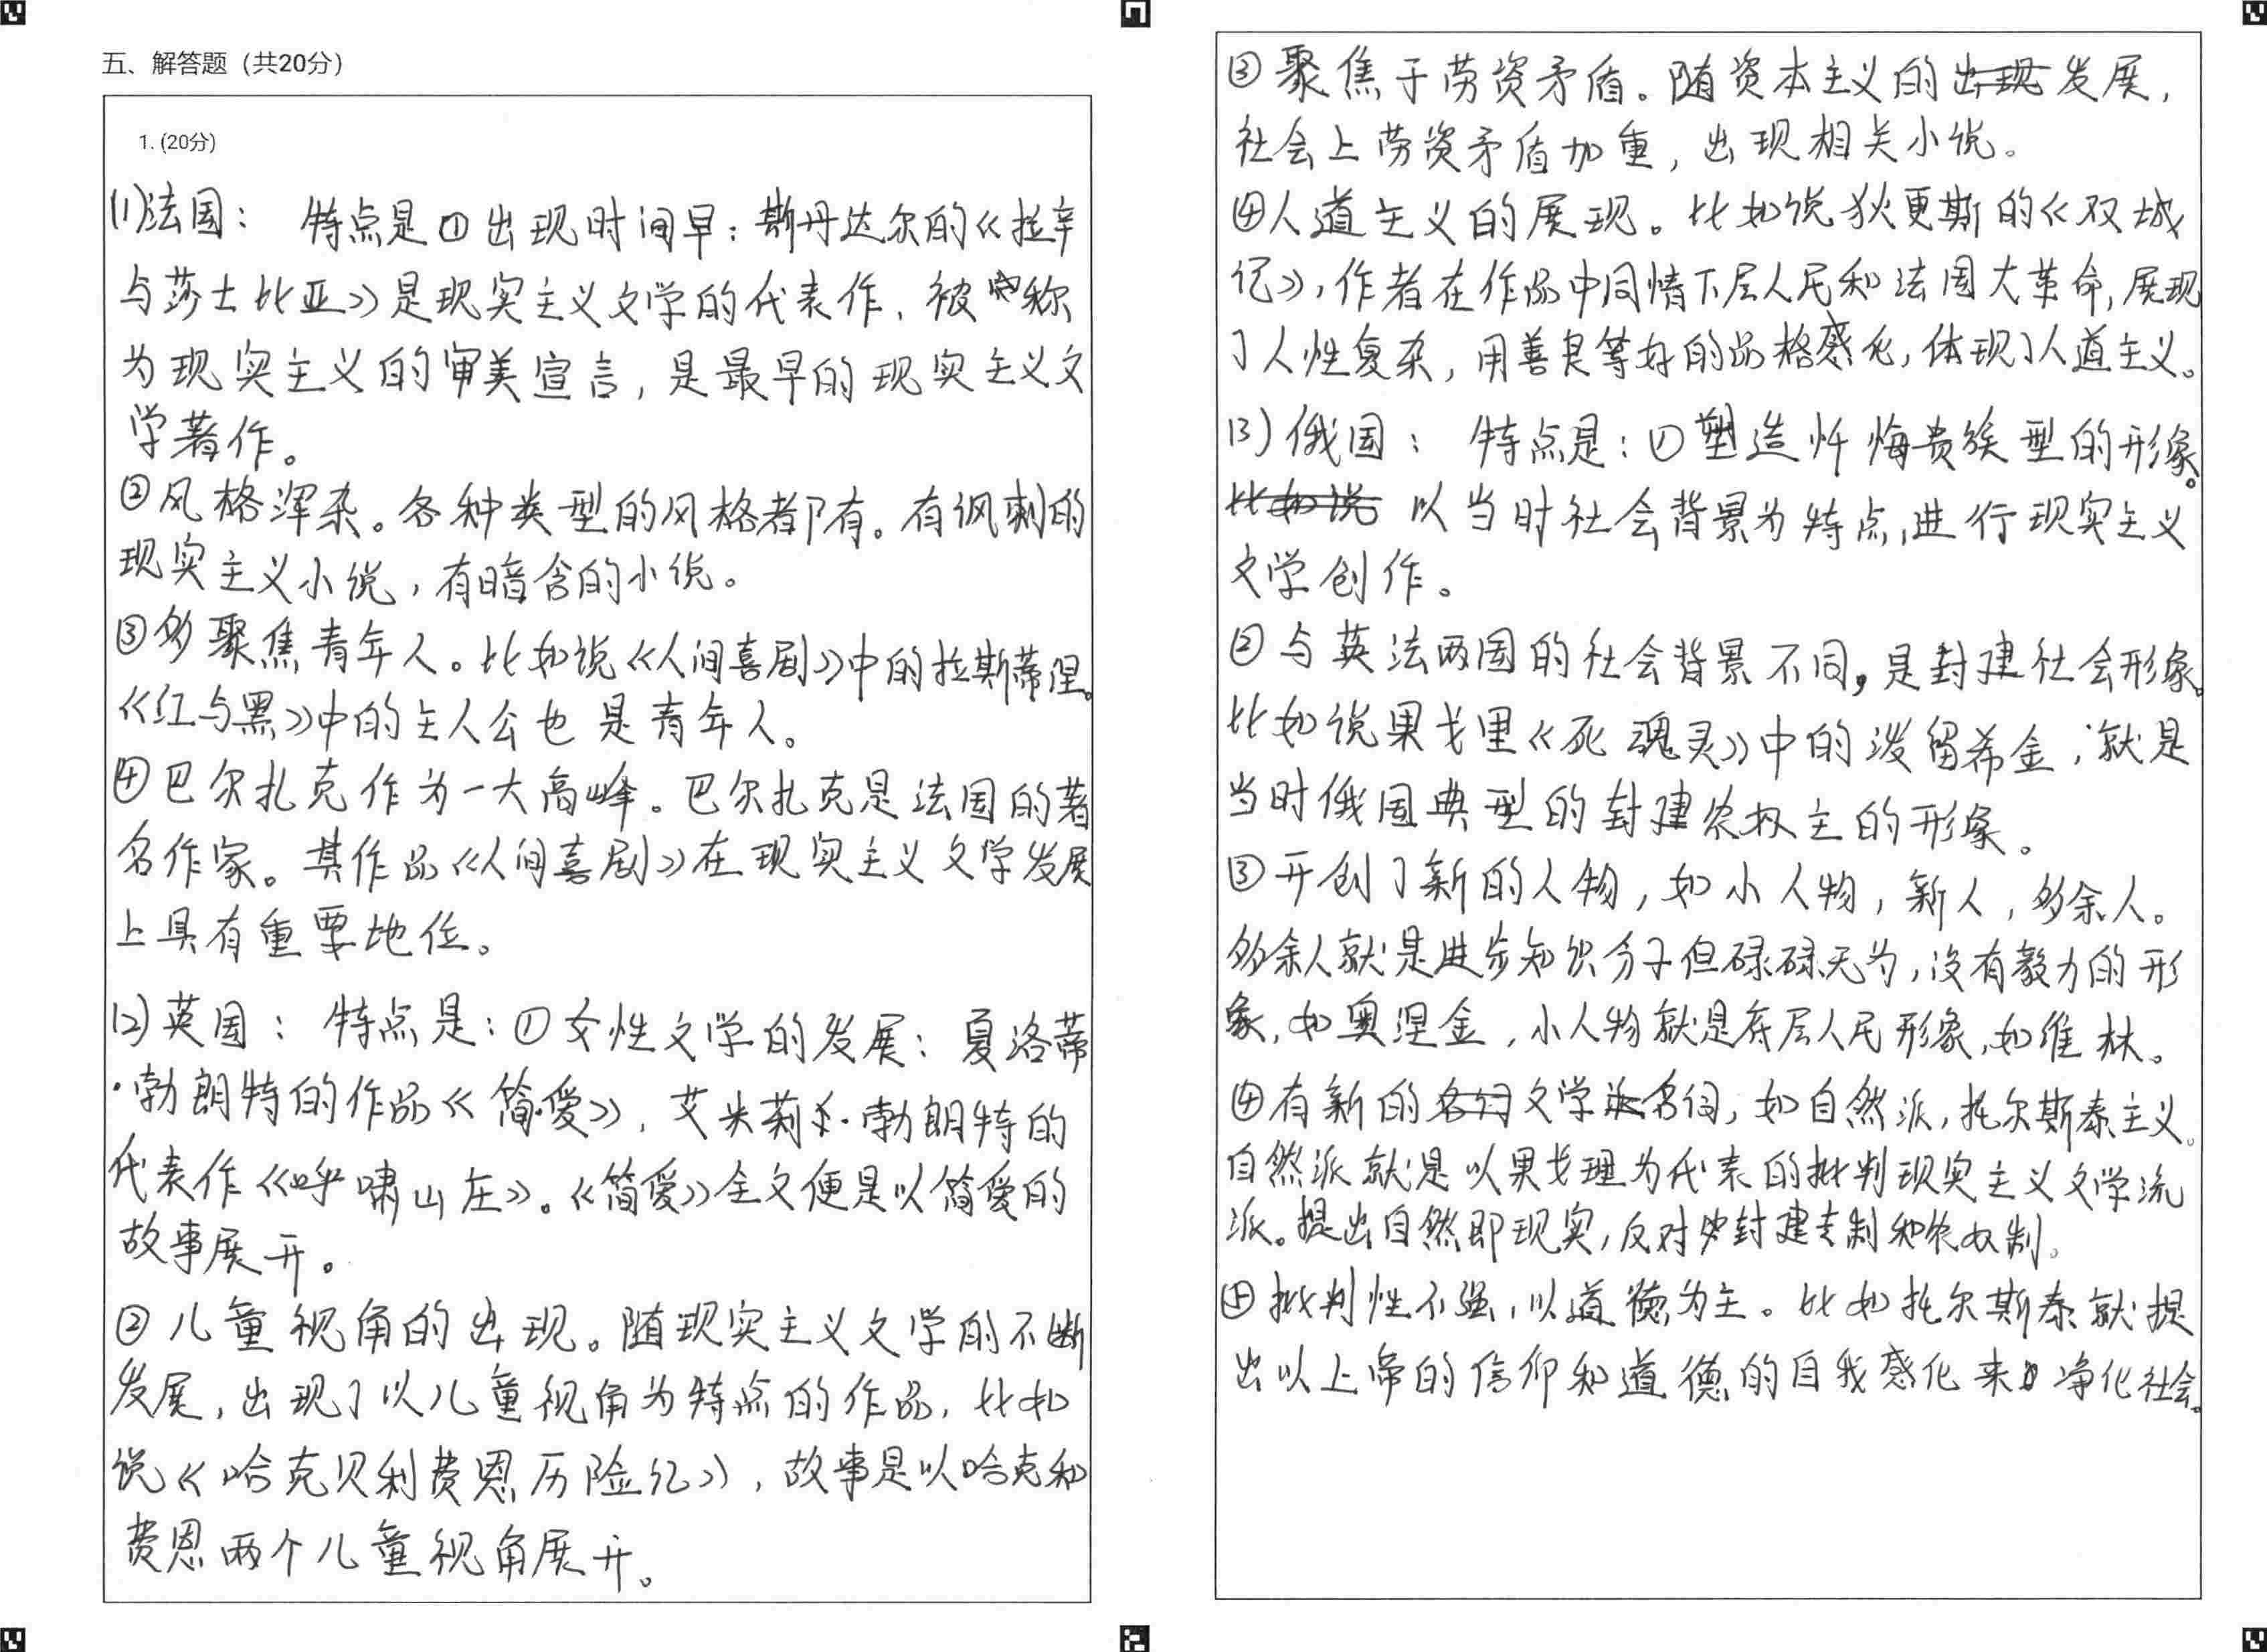 五、解答题（共20分）
1. (20分)
(1)法国： 特点是①出现时间早：斯丹达尔的《拉辛
与莎士比亚》是现实主义文学的代表作，被称
为现实主义的审美宣言，是最早的现实主义文
学著作。
②风格浑杂。各种类型的风格都有。有讽刺的
现实主义小说，有暗含的小说。
③多聚焦青年人。比如说《人间喜剧》中的拉斯蒂涅。
《红与黑》中的主人公也是青年人。
④巴尔扎克作为一大高峰。巴尔扎克是法国的著
名作家。其作品《人间喜剧》在现实主义文学发展
上具有重要地位。
(2)英国： 特点是：①女性文学的发展：夏洛蒂
·勃朗特的作品《简·爱》，艾米莉·勃朗特的
代表作《呼啸山庄》。《简爱》全文便是以简爱的
故事展开。
②儿童视角的出现。随现实主义文学的不断
发展，出现了以儿童视角为特点的作品，比如
说《哈克贝利费恩历险记》，故事是以哈克和
费恩两个儿童视角展开。
③聚焦于劳资矛盾。随资本主义的出现发展，
社会上劳资矛盾加重，出现相关小说。
④人道主义的展现。比如说狄更斯的《双城
记》，作者在作品中同情下层人民和法国大革命，展现
了人性复杂，用善良等好的品格感化，体现了人道主义。
(3)俄国： 特点是：①塑造忏悔贵族型的形象。
比如说 以当时社会背景为特点，进行现实主义
文学创作。
②与英法两国的社会背景不同，是封建社会形象。
比如说果戈里《死魂灵》中的泼留希金，就是
当时俄国典型的封建农奴主的形象。
③开创了新的人物，如小人物，新人，多余人。
多余人就是进步知识分子但碌碌无为，没有毅力的形
象，如奥涅金，小人物就是底层人民形象，如维林。
④有新的名词文学派名词，如自然派，托尔斯泰主义。
自然派就是以果戈理为代表的批判现实主义文学流
派。提出自然即现实，反对封建专制和农奴制。
⑤批判性不强，以道德为主。比如托尔斯泰就提
出以上帝的信仰和道德的自我感化来净化社会。